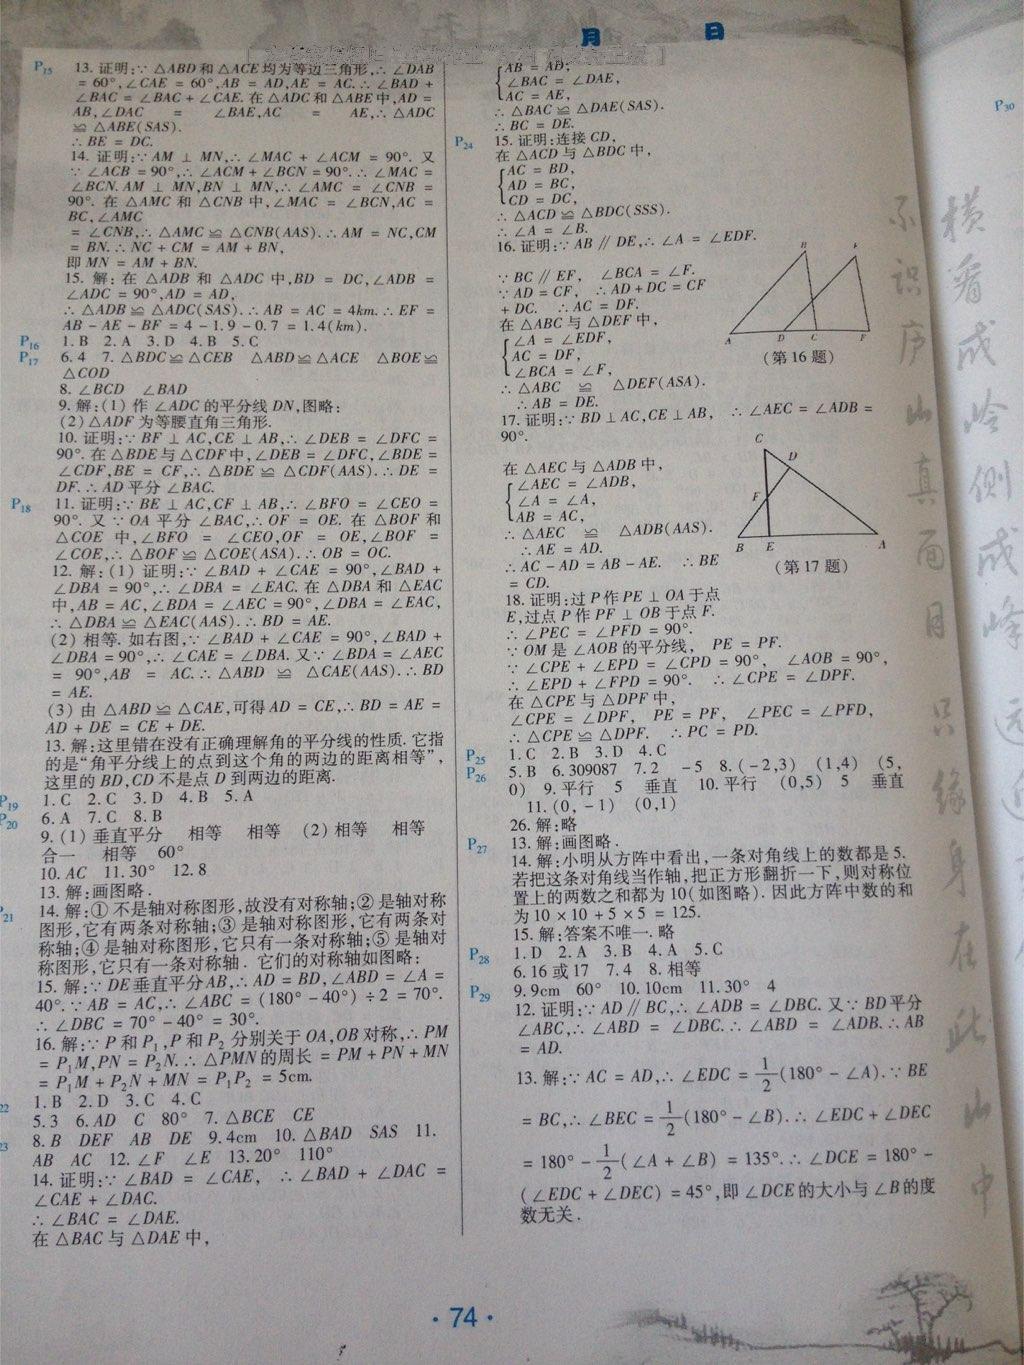 月 日
P15 13. 证明:∵ △ABD 和 △ACE 均为等边三角形,∴ ∠DAB
= 60°,∠CAE = 60°,AB = AD,AE = AC.∴ ∠BAD +
∠BAC = ∠BAC + ∠CAE. 在 △ADC 和 △ABE 中,AD =
AB,∠DAC = ∠BAE,AC = AE,∴ △ADC
≌ △ABE(SAS).
∴ BE = DC.
14. 证明:∵ AM ⊥ MN,∴ ∠MAC + ∠ACM = 90°. 又
∵ ∠ACB = 90°,∴ ∠ACM + ∠BCN = 90°.∴ ∠MAC =
∠BCN. AM ⊥ MN,BN ⊥ MN,∴ ∠AMC = ∠CNB =
90°. 在 △AMC 和 △CNB 中,∠MAC = ∠BCN,AC =
BC,∠AMC
= ∠CNB,∴ △AMC ≌ △CNB(AAS).∴ AM = NC,CM
= BN.∴ NC + CM = AM + BN,
即 MN = AM + BN.
15. 解: 在 △ADB 和 △ADC 中,BD = DC,∠ADB =
∠ADC = 90°,AD = AD,
∴ △ADB ≌ △ADC(SAS).∴ AB = AC = 4km.∴ EF =
AB − AE − BF = 4 − 1.9 − 0.7 = 1.4(km).
P16 1. B 2. A 3. D 4. B 5. C
P17 6. 4 7. △BDC ≌ △CEB △ABD ≌ △ACE △BOE ≌
△COD
8. ∠BCD ∠BAD
9. 解:(1) 作 ∠ADC 的平分线 DN,图略:
(2) △ADF 为等腰直角三角形.
10. 证明:∵ BF ⊥ AC,CE ⊥ AB,∴ ∠DEB = ∠DFC =
90°. 在 △BDE 与 △CDF 中,∠DEB = ∠DFC,∠BDE =
∠CDF,BE = CF,∴ △BDE ≌ △CDF(AAS).∴ DE =
DF.∴ AD 平分 ∠BAC.
P18 11. 证明:∵ BE ⊥ AC,CF ⊥ AB,∴ ∠BFO = ∠CEO =
90°. 又 ∵ OA 平分 ∠BAC,∴ OF = OE. 在 △BOF 和
△COE 中,∠BFO = ∠CEO,OF = OE,∠BOF =
∠COE,∴ △BOF ≌ △COE(ASA).∴ OB = OC.
12. 解:(1) 证明:∵ ∠BAD + ∠CAE = 90°,∠BAD +
∠DBA = 90°,∴ ∠DBA = ∠EAC. 在 △DBA 和 △EAC
中,AB = AC,∠BDA = ∠AEC = 90°,∠DBA = ∠EAC,
∴ △DBA ≌ △EAC(AAS).∴ BD = AE.
(2) 相等. 如右图,∵ ∠BAD + ∠CAE = 90°,∠BAD +
∠DBA = 90°,∴ ∠CAE = ∠DBA. 又∵ ∠BDA = ∠AEC
= 90°,AB = AC.∴ △ABD ≌ △CAE(AAS).∴ BD
= AE.
(3) 由 △ABD ≌ △CAE,可得 AD = CE,∴ BD = AE =
AD + DE = CE + DE.
13. 解:这里错在没有正确理解角的平分线的性质. 它指
的是“角平分线上的点到这个角的两边的距离相等”,
这里的 BD,CD 不是点 D 到两边的距离.
P19 1. C 2. C 3. D 4. B 5. A
P20 6. A 7. C 8. B
9. (1) 垂直平分 相等 相等 (2) 相等 相等
合一 相等 60°
10. AC 11. 30° 12. 8
13. 解:画图略.
P21 14. 解:① 不是轴对称图形,故没有对称轴;② 是轴对称
图形,它有两条对称轴;③ 是轴对称图形,它有两条对
称轴;④ 是轴对称图形,它只有一条对称轴;⑤ 是轴对
称图形,它只有一条对称轴. 它们的对称轴如图略:
15. 解:∵ DE 垂直平分 AB,∴ AD = BD,∠ABD = ∠A =
40°.∵ AB = AC,∴ ∠ABC = (180° − 40°) ÷ 2 = 70°.
∴ ∠DBC = 70° − 40° = 30°.
16. 解:∵ P 和 P1,P 和 P2 分别关于 OA,OB 对称,∴ PM
= P1M,PN = P2N.∴ △PMN 的周长 = PM + PN + MN
= P1M + P2N + MN = P1P2 = 5cm.
22 1. B 2. D 3. C 4. C
5. 3 6. AD C 80° 7. △BCE CE
23 8. B DEF AB DE 9. 4cm 10. △BAD SAS 11.
AB AC 12. ∠F ∠E 13. 20° 110°
14. 证明:∵ ∠BAD = ∠CAE, ∴ ∠BAD + ∠DAC =
∠CAE + ∠DAC.
∴ ∠BAC = ∠DAE.
在 △BAC 与 △DAE 中,
AB = AD,
∠BAC = ∠DAE,
AC = AE,
∴ △BAC ≌ △DAE(SAS).
∴ BC = DE.
P24 15. 证明:连接 CD,
在 △ACD 与 △BDC 中,
AC = BD,
AD = BC,
CD = DC,
∴ △ACD ≌ △BDC(SSS).
∴ ∠A = ∠B.
16. 证明:∵ AB ∥ DE,∴ ∠A = ∠EDF.
∵ BC ∥ EF, ∠BCA = ∠F.
∵ AD = CF, ∴ AD + DC = CF
+ DC. ∴ AC = DF.
在 △ABC 与 △DEF 中,
∠A = ∠EDF,
AC = DF,
∠BCA = ∠F,
∴ △ABC ≌ △DEF(ASA).
∴ AB = DE.
A D C F
(第 16 题)
17. 证明:∵ BD ⊥ AC,CE ⊥ AB, ∴ ∠AEC = ∠ADB =
90°.
在 △AEC 与 △ADB 中,
∠AEC = ∠ADB,
∠A = ∠A,
AB = AC,
∴ △AEC ≌ △ADB(AAS).
∴ AE = AD.
∴ AC − AD = AB − AE. ∴ BE
= CD.
C
D
F
B E A
(第 17 题)
18. 证明:过 P 作 PE ⊥ OA 于点
E,过点 P 作 PF ⊥ OB 于点 F.
∴ ∠PEC = ∠PFD = 90°.
∵ OM 是 ∠AOB 的平分线, PE = PF.
∵ ∠CPE + ∠EPD = ∠CPD = 90°, ∠AOB = 90°,
∴ ∠EPD + ∠FPD = 90°. ∴ ∠CPE = ∠DPF.
在 △CPE 与 △DPF 中,
∠CPE = ∠DPF, PE = PF, ∠PEC = ∠PFD,
∴ △CPE ≌ △DPF. ∴ PC = PD.
P25 1. C 2. B 3. D 4. C
P26 5. B 6. 309087 7. 2 −5 8. (−2,3) (1,4) (5,
0) 9. 平行 5 垂直 10. 平行 (0,5) 5 垂直
11. (0, −1) (0,1)
26. 解:略
P27 13. 解:画图略.
14. 解:小明从方阵中看出,一条对角线上的数都是 5.
若把这条对角线当作轴,把正方形翻折一下,则对称位
置上的两数之和都为 10(如图略). 因此方阵中数的和
为 10 × 10 + 5 × 5 = 125.
15. 解:答案不唯一. 略
P28 1. D 2. A 3. B 4. A 5. C
6. 16 或 17 7. 4 8. 相等
P29 9. 9cm 60° 10. 10cm 11. 30° 4
12. 证明:∵ AD ∥ BC,∴ ∠ADB = ∠DBC. 又∵ BD 平分
∠ABC,∴ ∠ABD = ∠DBC.∴ ∠ABD = ∠ADB.∴ AB
= AD.
13. 解:∵ AC = AD,∴ ∠EDC = 1/2(180° − ∠A).∵ BE
= BC,∴ ∠BEC = 1/2(180° − ∠B).∴ ∠EDC + ∠DEC
= 180° − 1/2(∠A + ∠B) = 135°.∴ ∠DCE = 180° −
(∠EDC + ∠DEC) = 45°,即 ∠DCE 的大小与 ∠B 的度
数无关.
· 74 ·
横看成岭侧成峰远近
不识庐山真面目只缘身在此山中
P30